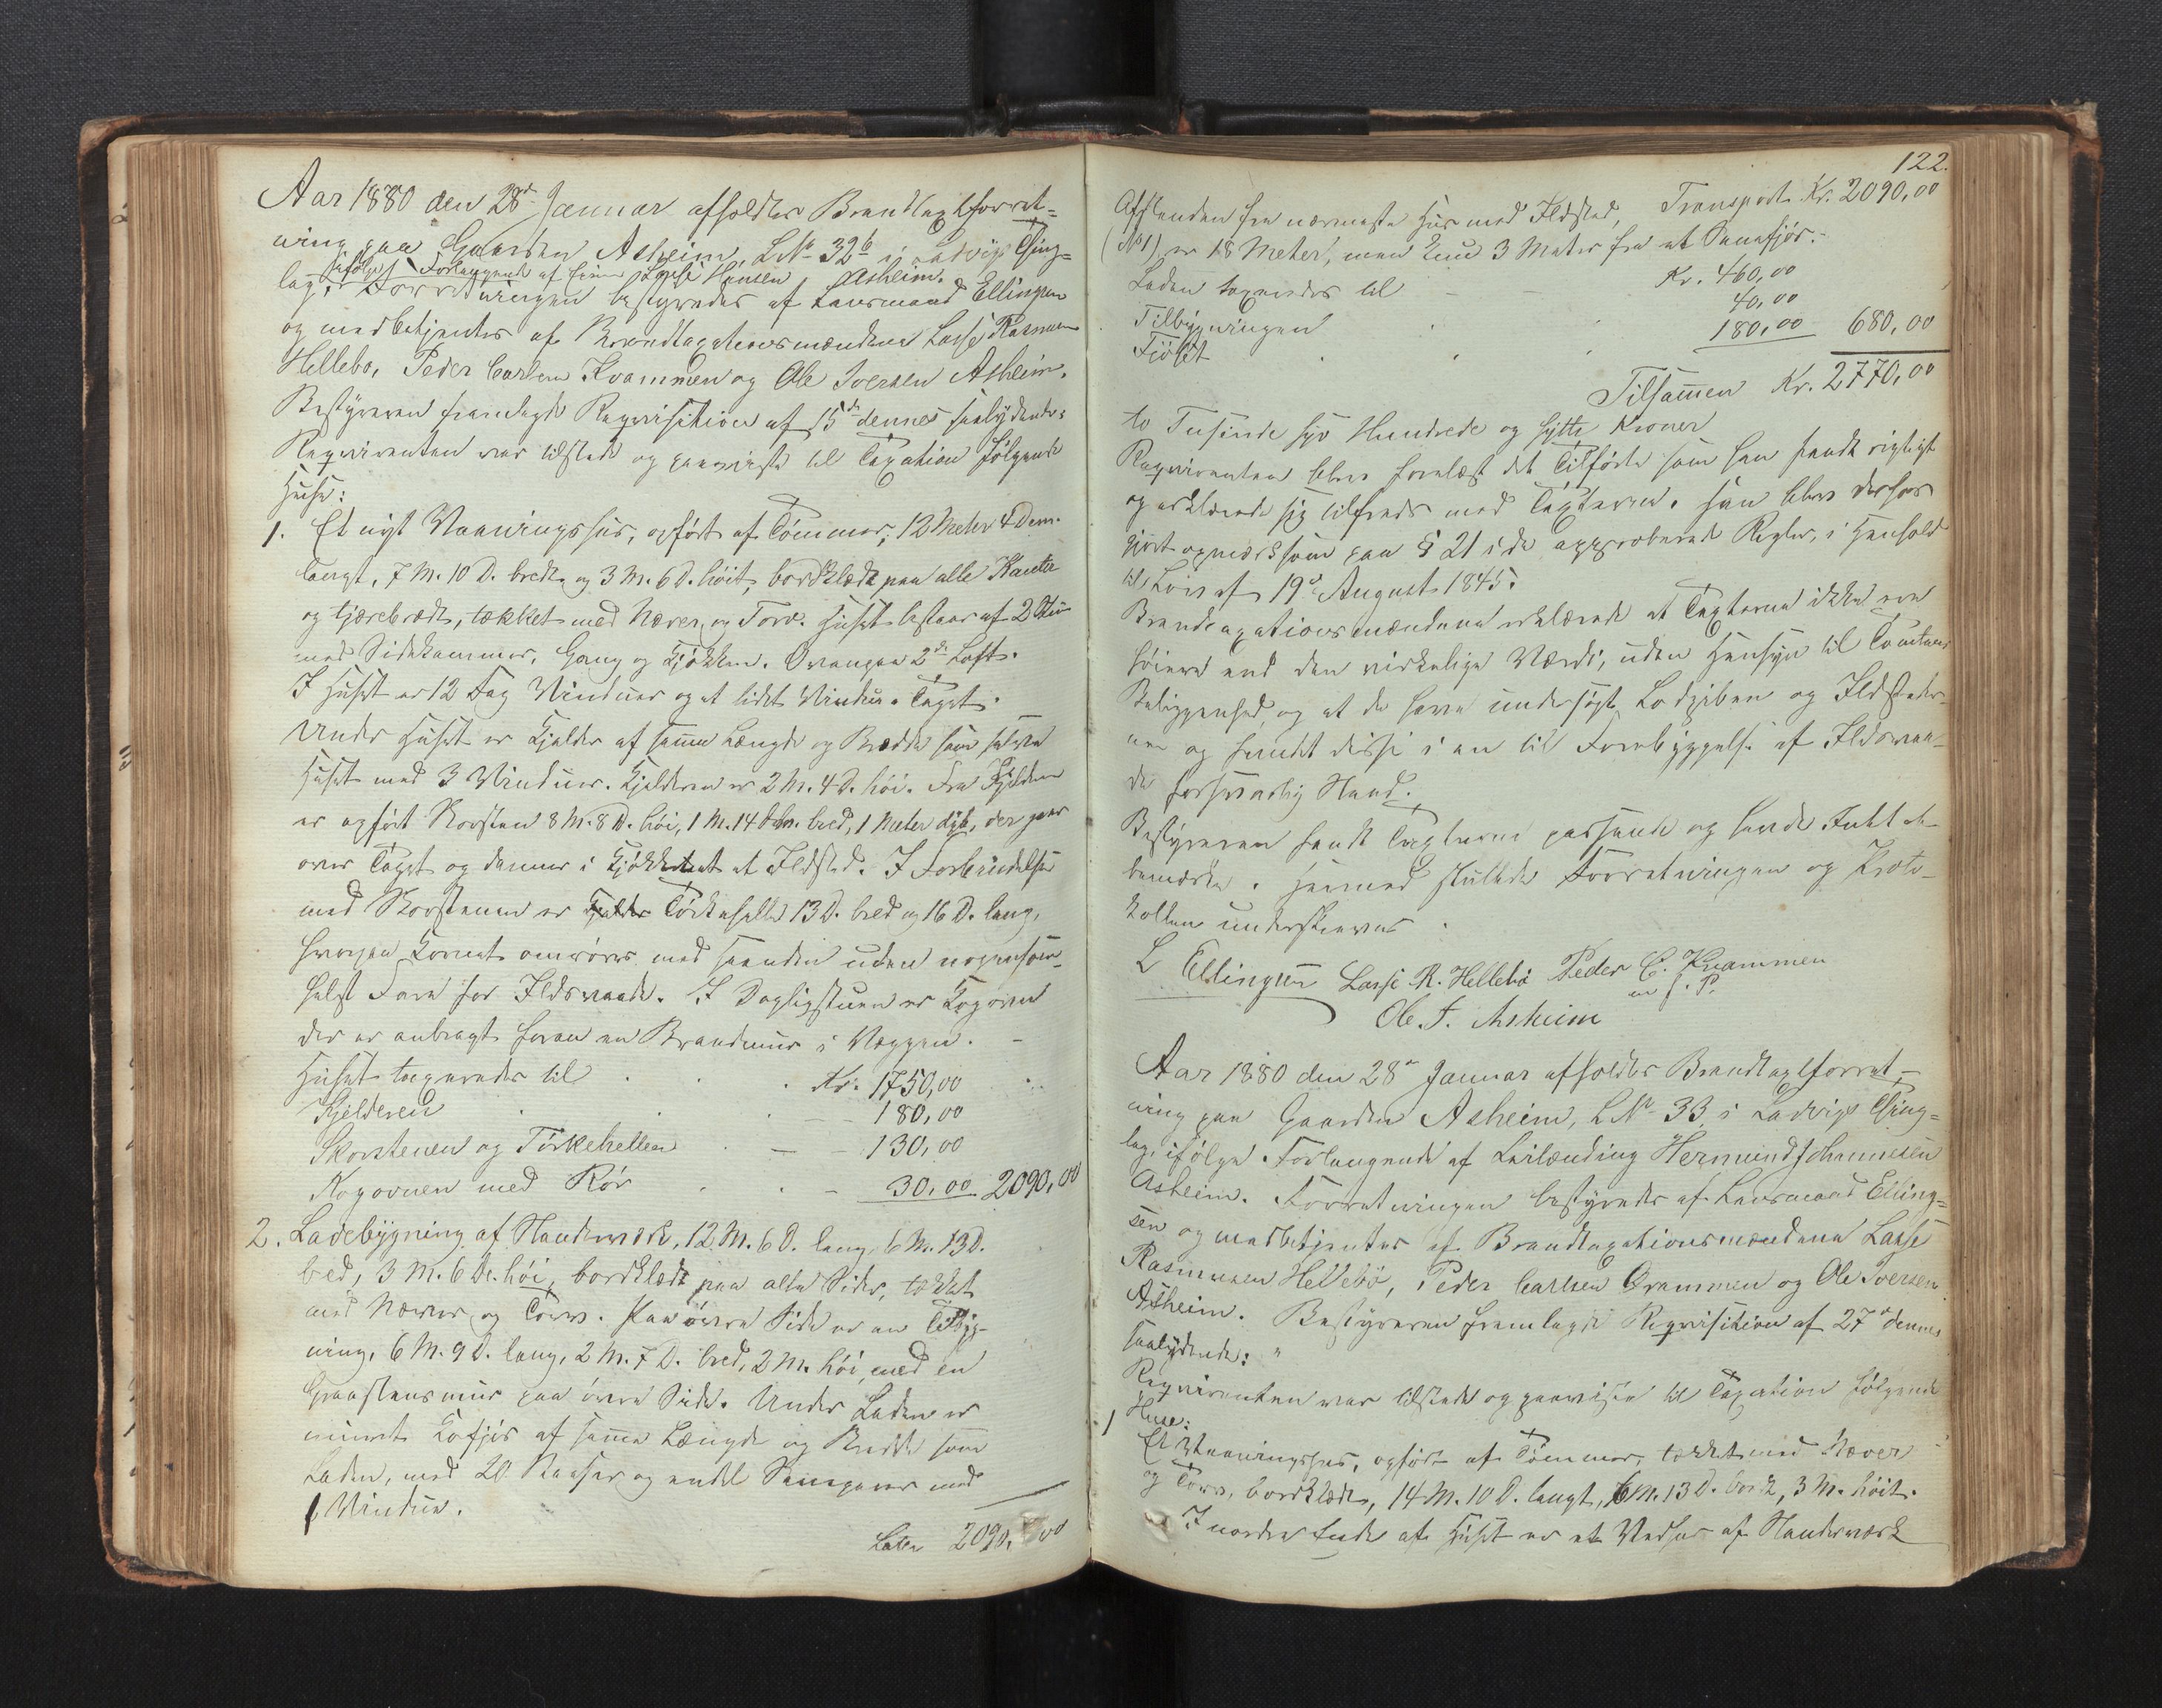 Aar 1880 den 28de Januar afholdtes Brandtaxtforret-
ning paa Gaarden Asheim, L No 32b i Ladvigs Thing-
ifølge Forlangende af Lasse Hansen Asheim.
lag. Forretningen bestyredes af Lensmand Ellingsen
og medbetjentes af Brandtaxationsmændene Lasse Rasmusen
Hellebø, Peder Carlsen Kvammen og Ole Iversen Asheim.
Bestyreren fremlagde Reqvisition af 15de dennes saalydende:
Reqvirenten var tilstede og paaviste til Taxation følgende
Huse:
1. Et nyt Vaaningshus, opført af Tømmer, 12 Meter 4 Dcm.
langt, 7 M. 10 D. bredt og 3 M. 6 D. høit, bordklædt paa alle Kanter
og tjærebrædt, tækket med Næver og Torv. Huset bestaar af 2 Stuer
med Sidekammer, Gang og Kjøkken. Ovenpaa 2de Loft.
I Huset er 12 Fag Vinduer og et lidet Vindu i Taget.
Under Huset er Kjelder af samme Længde og Bredde som selve
Huset med 3 Vinduer. Kjelderen er 2 M. 4 D. høi. Fra Kjelderen
er opført Skorsten 8 M. 8 D. høi, 1 M. 14 Dcm. bred, 1 Meter dyb, der gaar
over Taget og danner i Kjøkkenet et Ildsted. I Forbindelse
med Skorstenen er Tørkehelle 13 D. bred og 16 D. lang,
hvorpaa Kornet omrøres med Haanden uden nogensom-
helst Fare for Ildsvaade. I Dagligstuen er Kogeovn
der er anbragt foran en Brandmur i Væggen. -
Huset taxeredes til . . . Kr. 1750,00
Kjelderen . . . - - 180,00
Skorstenen og Tørkehellen . - - 130,00
Kogovnen med Rør . . - 30,00 2090,00
2. Ladebygning af Standerværk, 12 M. 6 D. lang, 6 M. 13 D.
bred, 3 M. 6 Dc. høi, bordklædt paa alle Sider, tækket
med Næver og Torv. Paa øvre Side er en Tilbyg-
ning, 6 M. 9 D. lang, 2 M. 7 D. bred, 2 M. høi, med en
Graastensmur paa øvre Side. Under Laden er
muret Kofjøs af samme Længde og Bredde som
Laden, med 20 Baaser og endel med
1 Vindue.
Latus 2090,00
122.
Afstanden fra nærmeste Hus med Ildsted, Transport Kr. 2090,00
(No 1) er 18 Meter, men kun 3 Meter fra et Sauefjøs.-
Laden taxeredes til - - Kr. 460,00
Tilbygningen . . 40,00
Fjøset . . . 180,00 680,00
Tilsammen Kr. 2770,00
to Tusinde syv Hundrede og sytti Kroner
Reqvirenten blev forelæst det Tilførte som han fandt rigtigt
og erklærede sig tilfreds med Taxterne. Han blev derhos
gjort opmærksom paa § 21 i de approberede Regler, i Henhold
til Lov af 19de August 1845.
Brandtaxationsmændene erklærede at Taxterne ikke ere
høiere end den virkelige Værdi, uden Hensyn til Tomtens
Beliggenhed, og at de have undersøgt Lodpiben og Ildstederne
og fundet disse i en til Forebyggelse af Ildsvaa-
de forsvarlig Stand.
Bestyreren fandt Taxterne passende og havde Intet at
bemærke. Hermed sluttedes Forretningen og Proto-
kollen underskreves.
L Ellingsen Lasse R. Hellebø Peder C. Kvammen
m. f. P.
Ole. I. Asheim
Aar 1880 den 28de Januar afholdtes Brandtaxtforret-
ning paa Gaarden Asheim, L No 33 i Ladvigs Thing-
lag, ifølge Forlangende af Leilænding Hermund Johannesen
Asheim. Forretningen bestyredes af Lensmand Elling-
sen og medbetjentes af Brandtaxationsmændene Lasse
Rasmusen Hellebø, Peder Carlsen Qvammen og Ole Iversen
Asheim. Bestyreren fremlagde Reqvisition af 27de dennes
saalydende: "
Reqvirenten var tilstede og paaviste til Taxation følgende
Huse:
1 Et Vaaningshus, opført af Tømmer, tækket med Næver
og Torv, bordklædt, 14 M. 10 D. langt, 6 M. 13 D. bredt, 3 M. høit.
I nordre Ende af Huset er et Vedhus af Standerværk